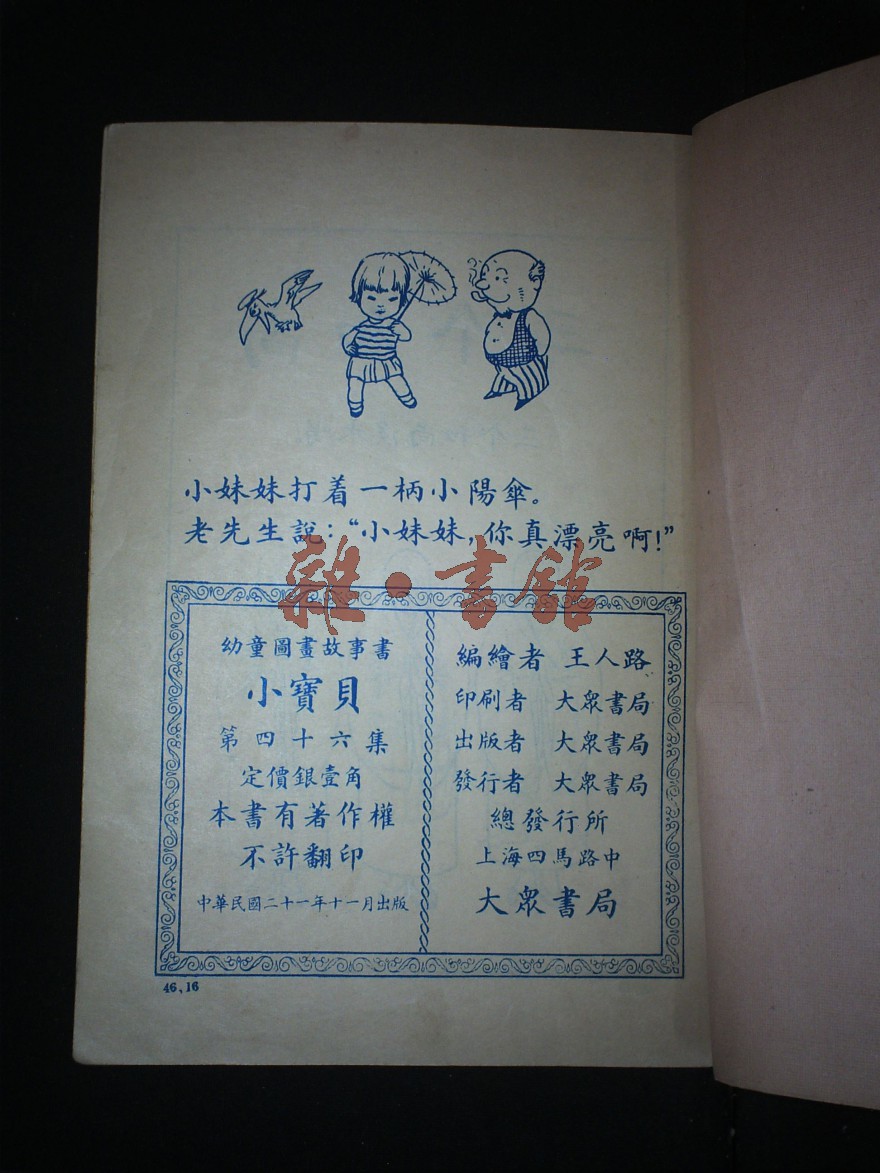 小妹妹打着一柄小陽傘。
老先生說：“小妹妹，你真漂亮啊！”
雜·書館
幼童圖畫故事書
小寶貝
第四十六集
定價銀壹角
本書有著作權
不許翻印
中華民國二十一年十一月出版
編繪者 王人路
印刷者 大眾書局
出版者 大眾書局
發行者 大眾書局
總發行所
上海四馬路中
大眾書局
46、16